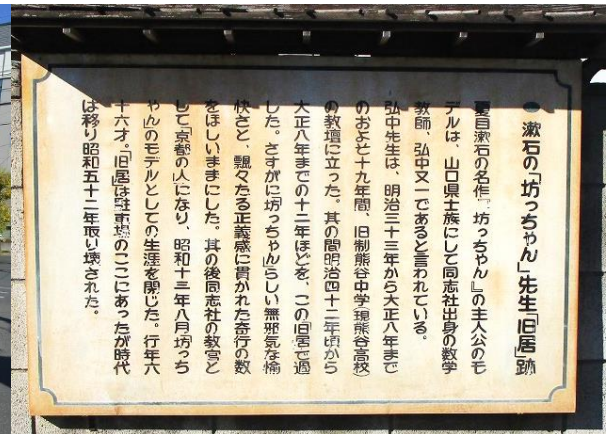 漱石の「坊っちゃん」先生「旧居」跡
夏目漱石の名作『坊っちゃん』の主人公のモ
デルは、山口県士族にして同志社出身の数学
教師、弘中又一であると言われている。
弘中先生は、明治三十三年から大正八年まで
のおよそ十九年間、旧制熊谷中学(現熊谷高校)
の教壇に立った。其の間明治四十二年頃から
大正八年までの十二年ほどを、この旧居で過
した。さすがに「坊っちゃん」らしい無邪気な愉
快さと、飄々たる正義感に貫かれた奇行の数
をほしいままにした。其の後同志社の教宮と
して「京都の人」になり、昭和十三年八月坊っち
ゃんのモデルとしての生涯を閉じた。行年六
十六才。「旧居」は駐車場のここにあったが時代
は移り昭和五十二年取り壊された。